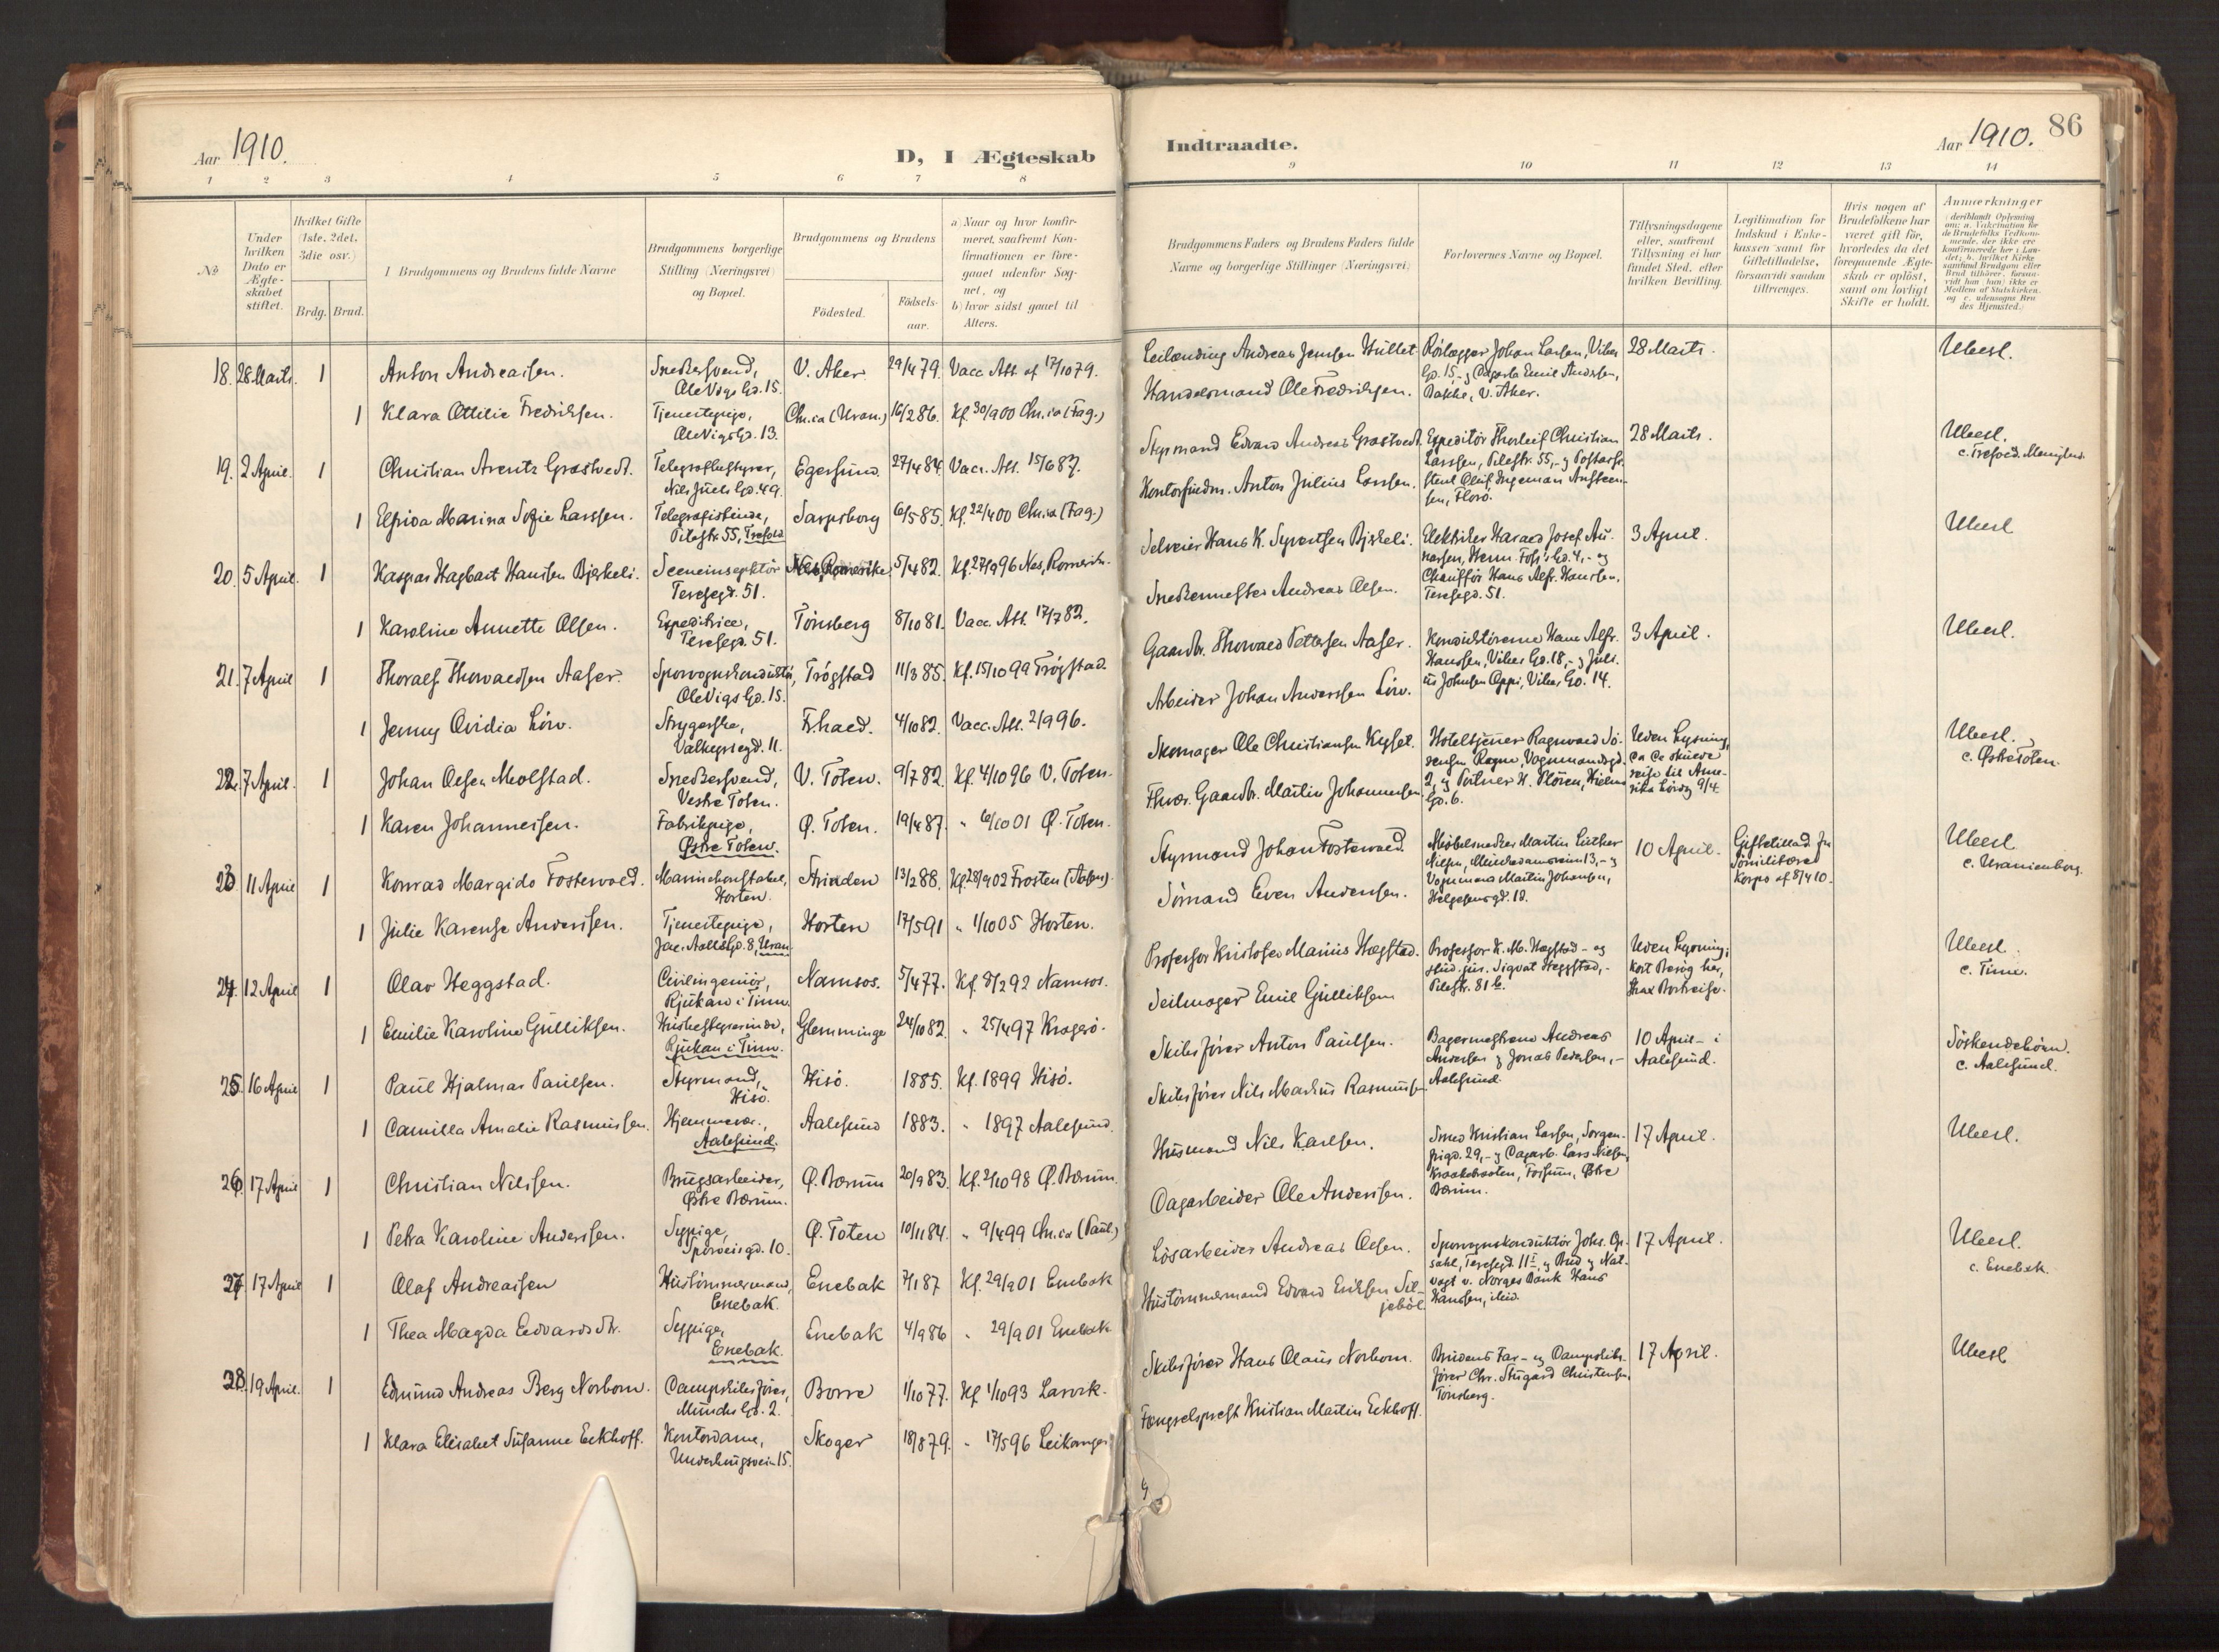 Aar 1910.
D, I Ægteskab
Indtraadte.
Aar 1910.
86
1 2 3 4 5 6 7 8
9 10 11 12 13 14
No
Under hvilken Dato er Ægteskabet stiftet.
Hvilket Gifte (1ste, 2det, 3die osv.)
Brdg. Brud.
I Brudgommens og Brudens fulde Navne
Brudgommens borgerlige Stilling (Næringsvei) og Bopæl.
Brudgommens og Brudens
Födested.
Födsels-aar.
a) Naar og hvor konfirmeret, saafremt Konfirmationen er foregaaet udenfor Sognet, og
b) hvor sidst gaaet til Alters.
Brudgommens Faders og Brudens Faders fulde Navne og borgerlige Stillinger (Næringsvei)
Forlovernes Navne og Bopæl.
Tillysningsdagene eller, saafremt Tillysning ei har fundet Sted, efter hvilken Bevilling.
Legitimation for Indskud i Enkekassen samt for Giftetilladelse, forsaavidt saadan tiltrænges.
Hvis nogen af Brudefolkene har været gift för, hvorledes da det foregaaende Ægteskab er oplöst, samt om lovligt Skifte er holdt.
Anmærkninger
18. 28 Marts. 1 Anton Andreassen. Snedkersvend, Ole Vigs Gd. 15. V. Aker 29/4 79. Vacc. Att. af 17/10 79.
1 Klara Ottilie Fredriksen. Tjenestepige, Ole Vigs Gd. 13. Chr.ia (Uran.) 16/2 86. Kf. 30/9 00 Chr.ia (Fag.)
19. 2 April. 1 Christian Arentz Grostvedt. Telegrafbestyrer, Nils Juels Gd. 49. Egersund. 27/4 84. Vacc. Att. 15/6 87.
1 Elfrida Marina Sofie Larssen. Telegrafistinde, Pilestr. 55, Trefold. Sarpsborg 6/5 85. Kf. 22/4 00 Chr.ia (Fag.)
20. 5 April. 1 Kaspar Hagbart Hanssen Bjerkeli. Sceneinspektör Teresegd. 51. Nes, Romerike 5/4 82. Kf. 27/9 96 Nes, Romerik.
1 Karoline Annette Olsen. Expeditrice, Teresegd. 51. Tönsberg 8/10 81. Vacc. Att. 17/7 82.
21. 7 April 1 Thoralf Thorvaldsen Aaser. Sporvognskonduktör, Ole Vigs Gd. 15. Trögstad 11/3 85. Kf. 15/10 99 Trögstad.
1 Jenny Ovidia Löw. Strygerske, Valkyriegd. 11. Fr.hald. 4/10 82. Vacc. Att. 2/9 96.
22. 7 April. 1 Johan Olsen Molstad. Snedkersvend, Vestre Toten. V. Toten. 9/7 82. Kf. 4/10 96 V. Toten.
1 Karen Johannessen. Fabrikpige, Østre Toten. Ø. Toten. 19/4 87. " 6/10 01 Ø. Toten.
23 11 April 1 Konrad Margido Fostervold. Marinekonstabel, Horten. Strinden 13/2 88. Kf. 28/9 02 Frosten (Aasen).
1 Julie Karense Anderssen. Tjenestepige, Jac. Aalls Gd. 8, Uran. Horten 17/5 91 " 1/10 05 Horten.
24. 12 April 1 Olav Heggstad. Civilingeniör, Rjukan i Tinn. Namsos. 5/4 77. Kf. 8/2 92 Namsos.
1 Emilie Karoline Gulliksen. Husbestyrerinde, Rjukan i Tinn. Glemminge 24/10 82. " 25/4 97 Kragerö.
25. 16 April 1 Paul Hjalmar Paulsen. Styrmand, Hisö. Hisö. 1885. Kf. 1899 Hisö.
1 Camilla Amalie Rasmussen. Hjemmevær., Aalesund. Aalesund 1883. " 1897 Aalesund.
26. 17 April 1 Christian Nilssen. Brugsarbeider, Østre Bærum. Ø. Bærum 20/9 83. Kf. 2/10 98 Ø. Bærum.
1 Petra Karoline Anderssen. Sypige, Sporveisgd. 10. Ø. Toten 10/11 84. " 9/4 99 Chr.ia (Paul.)
27. 17 April 1 Olaf Andreassen Hustömmermand, Enebak. Enebak 7/1 87 Kf. 29/9 01 Enebak
1 Thea Magda Edvardsdtr. Sypige, Enebak. Enebak 4/9 86 " 29/9 01 Enebak
28. 19 April. 1 Edmund Andreas Berg Norbom. Dampskibsförer, Munches Gd. 2. Borre 1/10 77. Kf. 1/10 93 Larvik.
1 Klara Elisabet Susanne Eckhoff. Kontordame, Underhaugsvein 15. Skoger 18/8 79. " 17/5 96 Leikanger
Leilænding Andreas Jenssen Hullet.
Handelsmand Ole Fredriksen.
Rörlægger Johan Larsen, Vibes Gd. 15, - og Dagarb. Emil Andersen, Bakke, V. Aker.
28 Marts.
Ubesl.
Styrmand Edvard Andreas Grostvedt.
Kontorfuldm. Anton Julius Larssen.
Expeditör Thorleif Christian Larssen, Pilestr. 55, - og Postassistent Oluf Ingeman Anfteensen, Florö.
28 Marts.
Ubesl.
c. Trefold. Menighed.
Selveier Hans K. Syvertsen Bjerkeli.
Snedkermester Andreas Olsen.
Elektriker Harald Josef Aunessen, Herm. Foss's Gd. 4, - og Chaufför Hans Alfr. Hanssen, Teresegd. 51.
3 April.
Ubesl
Gaardbr. Thorvald Pettersen Aaser.
Arbeider Johan Anderssen Löw.
Konduktörerne Hans Alfr. Hanssen, Vibes Gd. 18, - og Julius Johnsen Oppi, Vibes Gd. 14.
3 April.
Ubesl.
Skomager Ole Christiansen Kyset.
Fhvr. Gaardbr. Martin Johannessen.
Hoteltjener Ragnvald Sörensen Ragne, Vognmandsgd. 2, og Portner H. Flören, Hjelms Gd. 6.
Uden Lysning, da de skulde reise til Amerika Lördag 9/4.
Ubesl.
c. Østre Toten.
Styrmand Johan Fostervold.
Sömand Even Anderssen.
Möbelsnedker Martin Luther Nilsen, Munkedamsvein 13, - og Vognmand Martin Johansen, Helgesensgd. 12.
10 April.
Giftetillad. fra Sömilitære Korps af 8/4 10.
Ubesl
c. Uranienborg.
Professor Kristofer Marius Hægstad.
Seilmager Emil Gulliksen
Professor K. M. Hægstad - og stud. jur. Sigvat Heggstad, - Pilestr. 81 b.
Uden Lysning; kort Besög her, strax Bortreise.
Ubesl
c. Tinn.
Skibsförer Anton Paulsen.
Skibsförer Nils Markus Rasmussen
Bagermestrene Andreas Andersen og Jonas Pedersen, - Aalesund.
10 April - i Aalesund.
Söskendebörn.
c. Aalesund.
Husmand Nils Karlsen.
Dagarbeider Ole Anderssen.
Smed Kristian Larsen, Sorgenfrigd. 29, - og Dagarb. Lars Nilsen, Kraakebraaten, Fossum, Østre Bærum.
17 April.
Ubesl.
Lösarbeider Andreas Olsen.
Hustömmermand Edvard Eriksen Siljeböl.
Sporvognskonduktör Johs. Opsahl, Teresegd. 11 I, og Bud og Natvagt v. Norges Bank Hans Hanssen, ibid.
17 April.
Ubesl.
c. Enebak.
Skibsförer Hans Olaus Norbom.
Fængselsprest Kristian Martin Eckhoff.
Brudens Far - og Dampskibsförer Chr. Stugard Christensen, Tönsberg.
17 April.
Ubesl